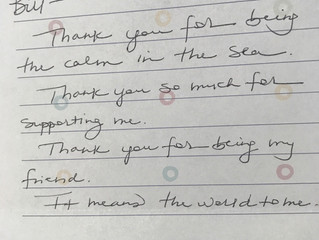 Bill-
Thank you for being
the calm in the sea.
Thank you so much for
supporting me.
Thank you for being my
friend.
It means the world to me.